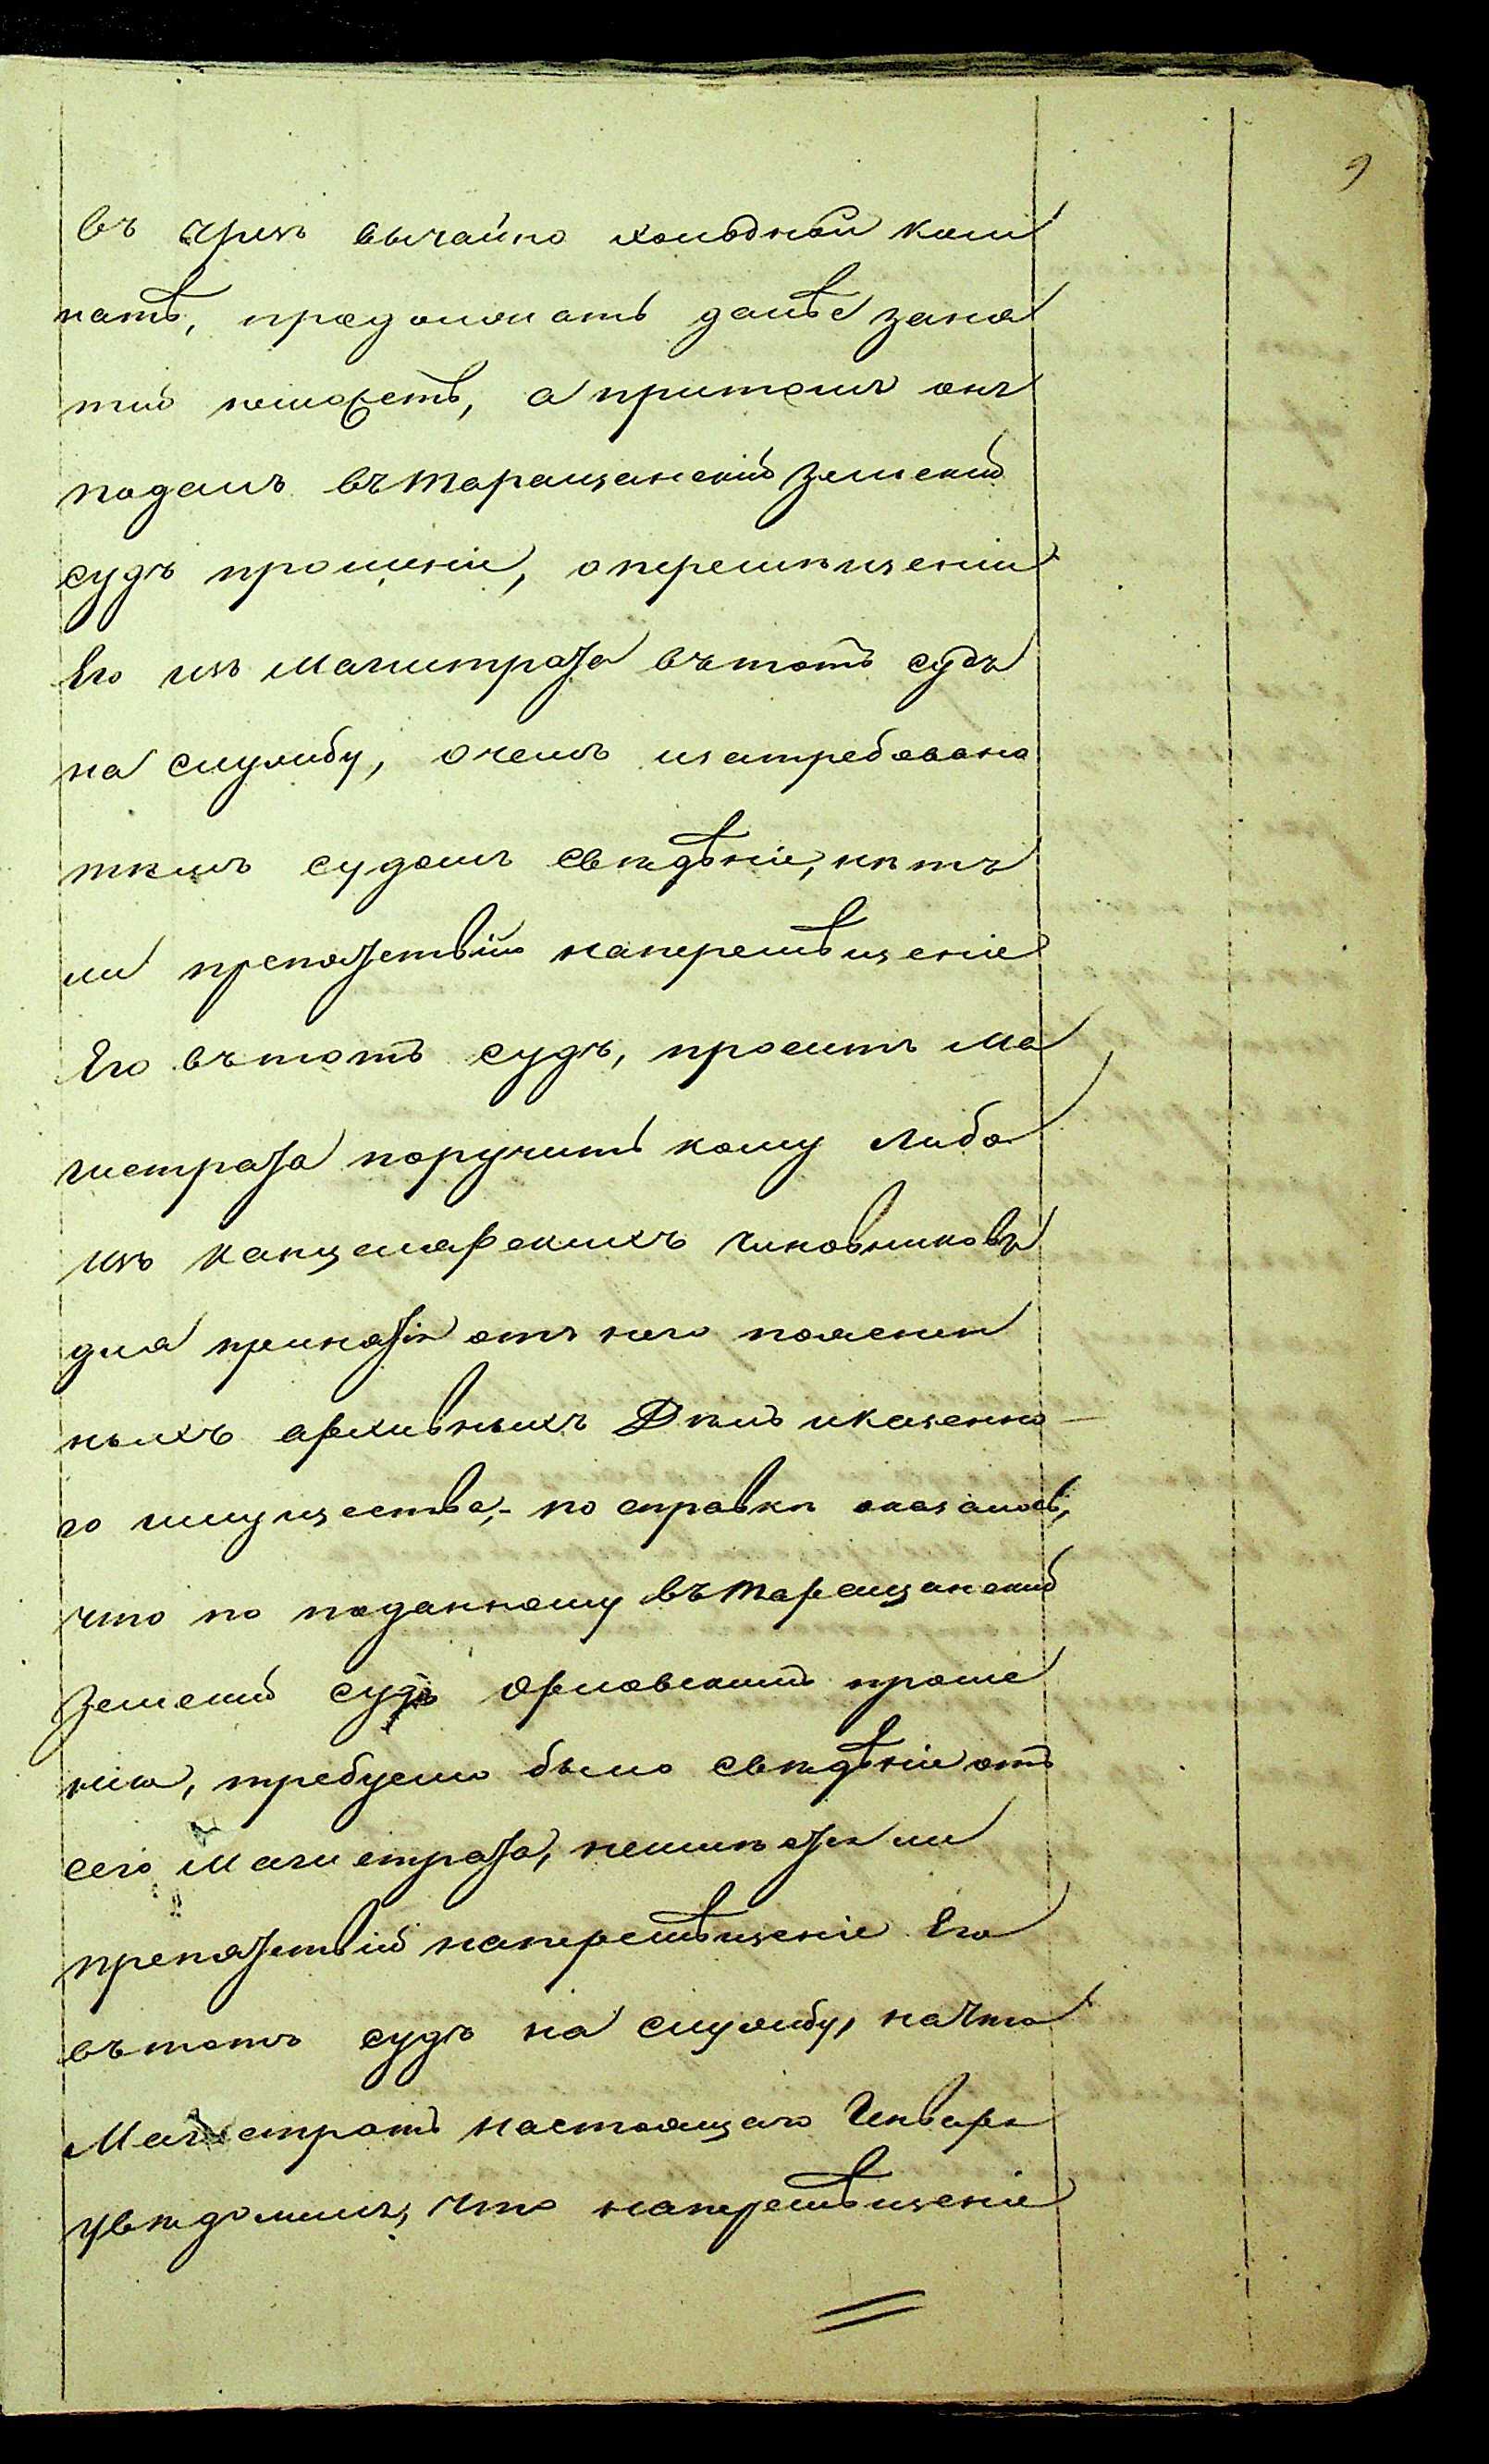 9
въ чрезъ вычайно холодной ком
натѣ, продолжать далѣе заня
тій неможетъ, а притомъ онъ
подалъ въ Таращанскій Земскій
судъ прошеніе, о перемѣщеніи
Его изъ Магистрата въ тотъ судъ
на службу, о чемъ истребовано
тѣмъ судомъ свѣдѣніе, нѣтъ
ли препятствій на перемѣщеніе
Его въ тотъ судъ, проситъ Ма
гистрата поручить кому либо
изъ Канцелярскихъ чиновниковъ
для принятія отъ него пояснен
ныхъ архивныхъ Дѣлъ и казенна
го имущества,- по справкѣ оказалось,
что по поданному въ Таращанскій
Земскій судъ Орловскимъ проше
нію, требуемо было свѣдѣніе отъ
сего Магистрата, неимѣется ли
препятствій на перемѣщеніе Его
въ тотъ судъ на службу, на что
Магистратъ настоящаго Генваря
увѣдомилъ, что на перемѣщеніе